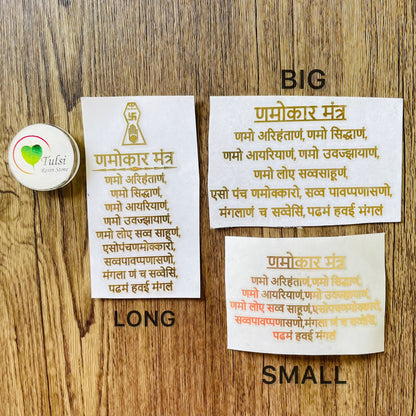 Tulsi
Resin Stone
णमोकार मंत्र
णमो अरिहंताणं,
णमो सिद्धाणं,
णमो आयरियाणं,
णमो उवज्झायाणं,
णमो लोए सव्व साहूणं,
एसोपंचणमोक्कारो,
सव्वपावप्पणासणो,
मंगला णं च सव्वेसिं,
पढमं हवई मंगलं
LONG
BIG
णमोकार मंत्र
णमो अरिहंताणं, णमो सिद्धाणं,
णमो आयरियाणं, णमो उवज्झायाणं,
णमो लोए सव्वसाहूणं,
एसो पंच णमोक्कारो, सव्व पावप्पणासणो,
मंगलाणं च सव्वेसिं, पढमं हवई मंगलं
णमोकार मंत्र
णमो अरिहंताणं,णमो सिद्धाणं,
णमो आयरियाणं,णमो उवज्झायाणं,
णमो लोए सव्व साहूणं,एसोपंचणमोक्कारो,
सव्वपावप्पणासणो,मंगला णं च सव्वेसिं,
पढमं हवई मंगलं
SMALL